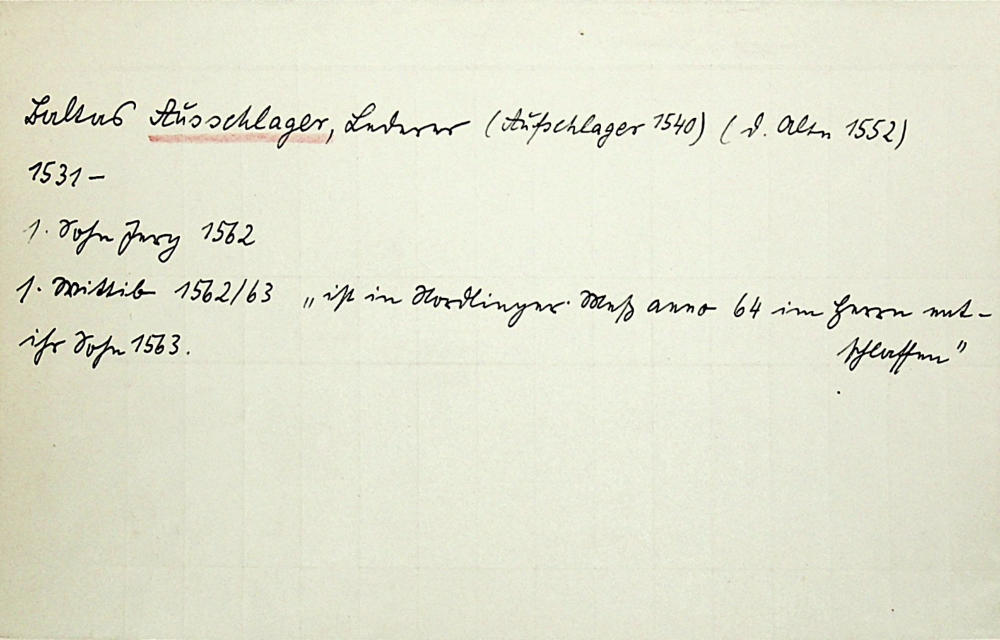 Baltas Ausschlager, Lederer (Aufschlager 1540) (d. Alte 1552)
1531 –
1. Sohn Jerg 1562
1. Wittib 1562/63 „ist in Nördlinger Meß anno 64 im Herrn ent-
schlaffen"
ihr Sohn 1563.